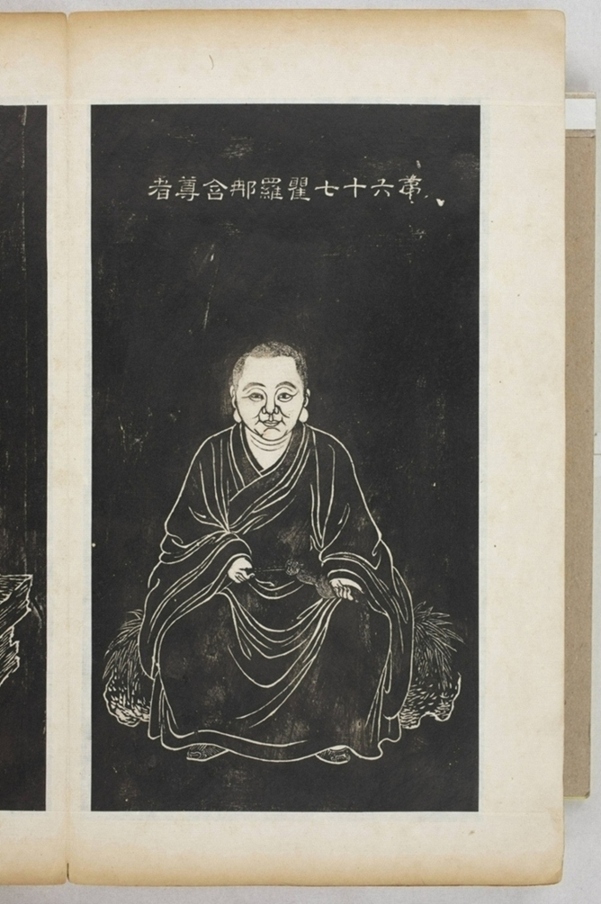 第六十七瞿羅那含尊者